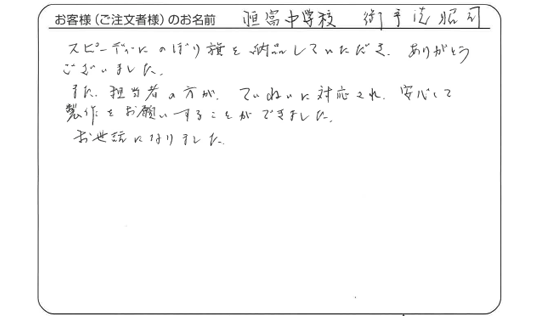 お客様（ご注文者様）のお名前 恒富中学校
スピーディにのぼり旗を納品していただき、ありがとう
ございました。
また、担当者の方が、ていねいに対応され、安心して
製作をお願いすることができました。
お世話になりました。